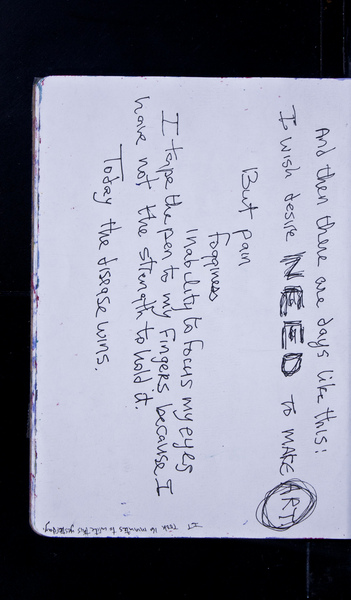 And then there are days like this:
I wish desire NEED TO MAKE ART
But pain
fogginess
inability to focus my eyes
I tape the pen to my fingers because I
have not the strength to hold it.
Today the disease wins.
IT took 16 minutes to write this yesterday.